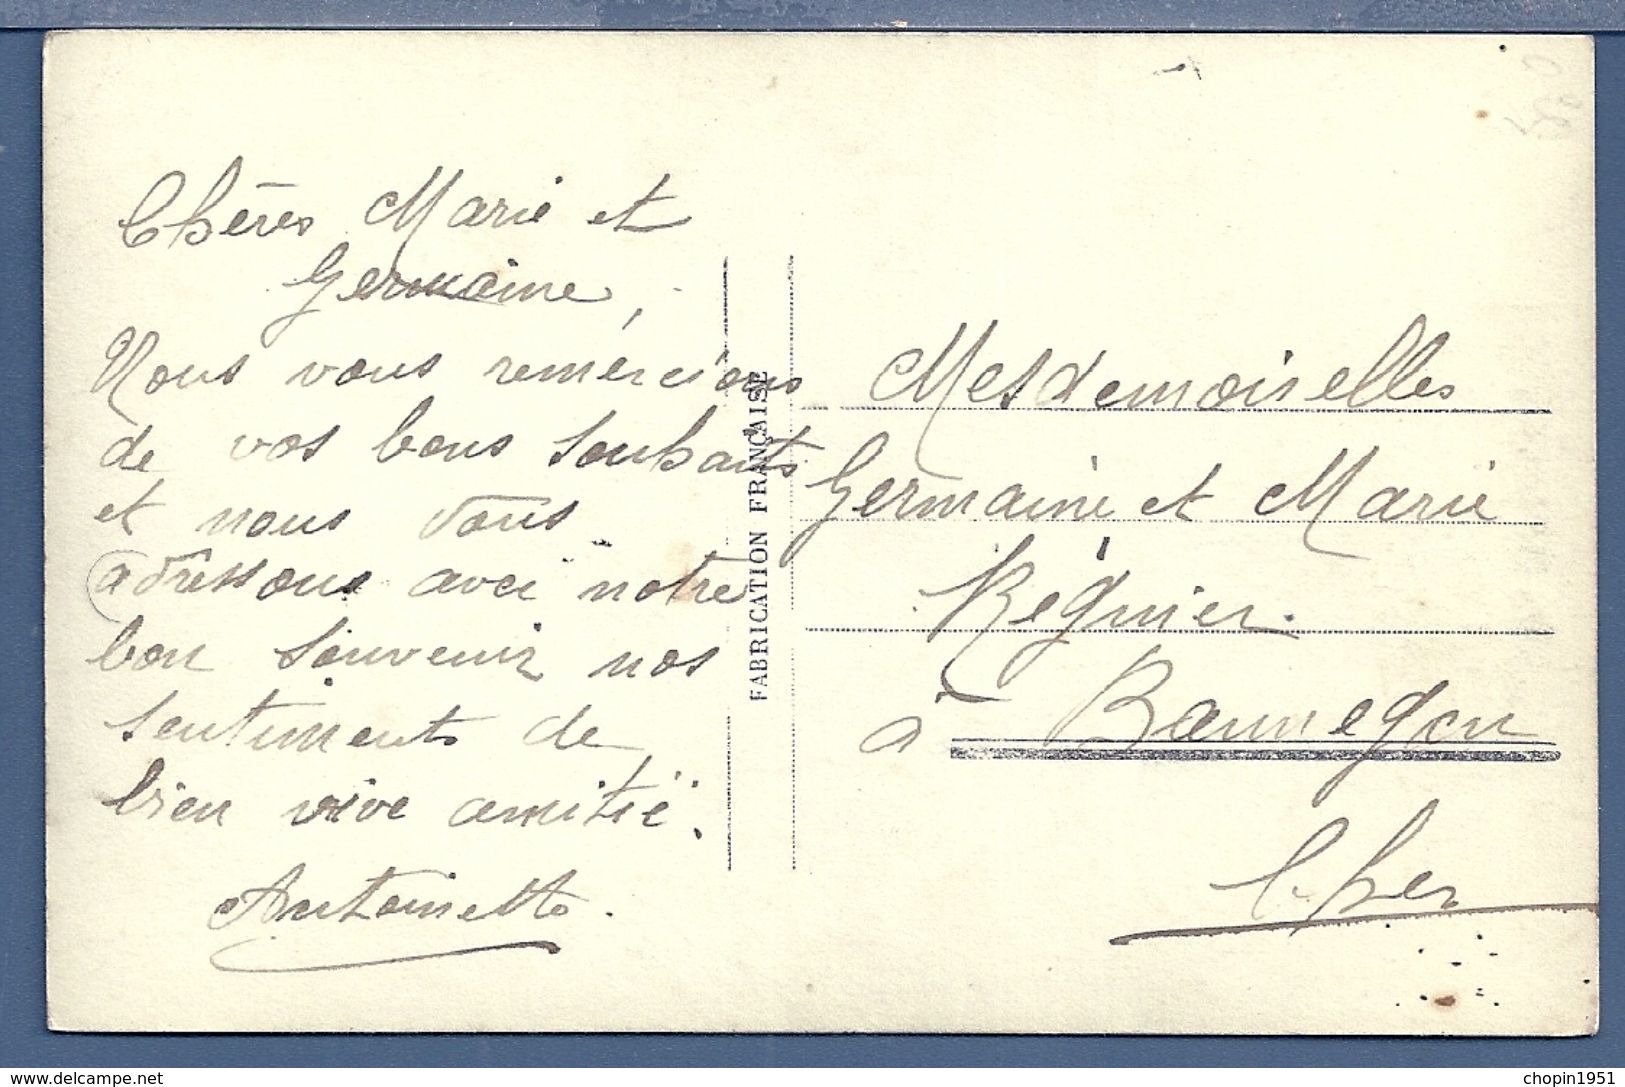 Chères Marie et
Germaine,
Nous vous remercions
de vos bons souhaits
et nous vous
adressons avec notre
bon souvenir nos
sentiments de
bien vive amitié.
Antoinette.
FABRICATION FRANÇAISE
Mesdemoiselles
Germaine et Marie
Régnier.
à Bannegon
Cher
delcampe.net
chopin1951